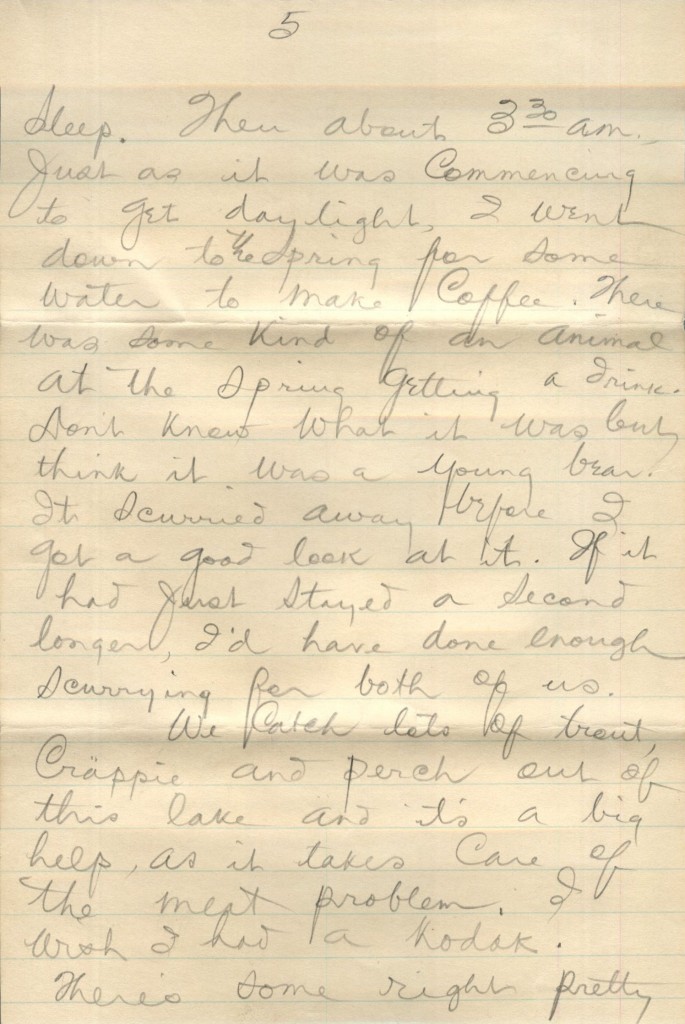 5
sleep. Then about 3 30 am.,
Just as it was Commencing
to get day light, I went
down to the Spring for some
water to make Coffee. There
was some kind of an animal
at the spring getting a drink.
Don't know what it was but
think it was a young bear.
It scurried away before I
got a good look at it. If it
had just stayed a second
longer, I'd have done enough
scurrying for both of us.
We Catch lots of trout,
Cräppie and perch out of
this lake and it's a big
help, as it takes Care of
the meat problem. I
wish I had a Kodak.
There's some right pretty